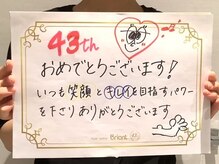 43th
おめでとうございます!
いつも笑顔とキレイを目指すパワー
を下さりありがとうございます
Briant